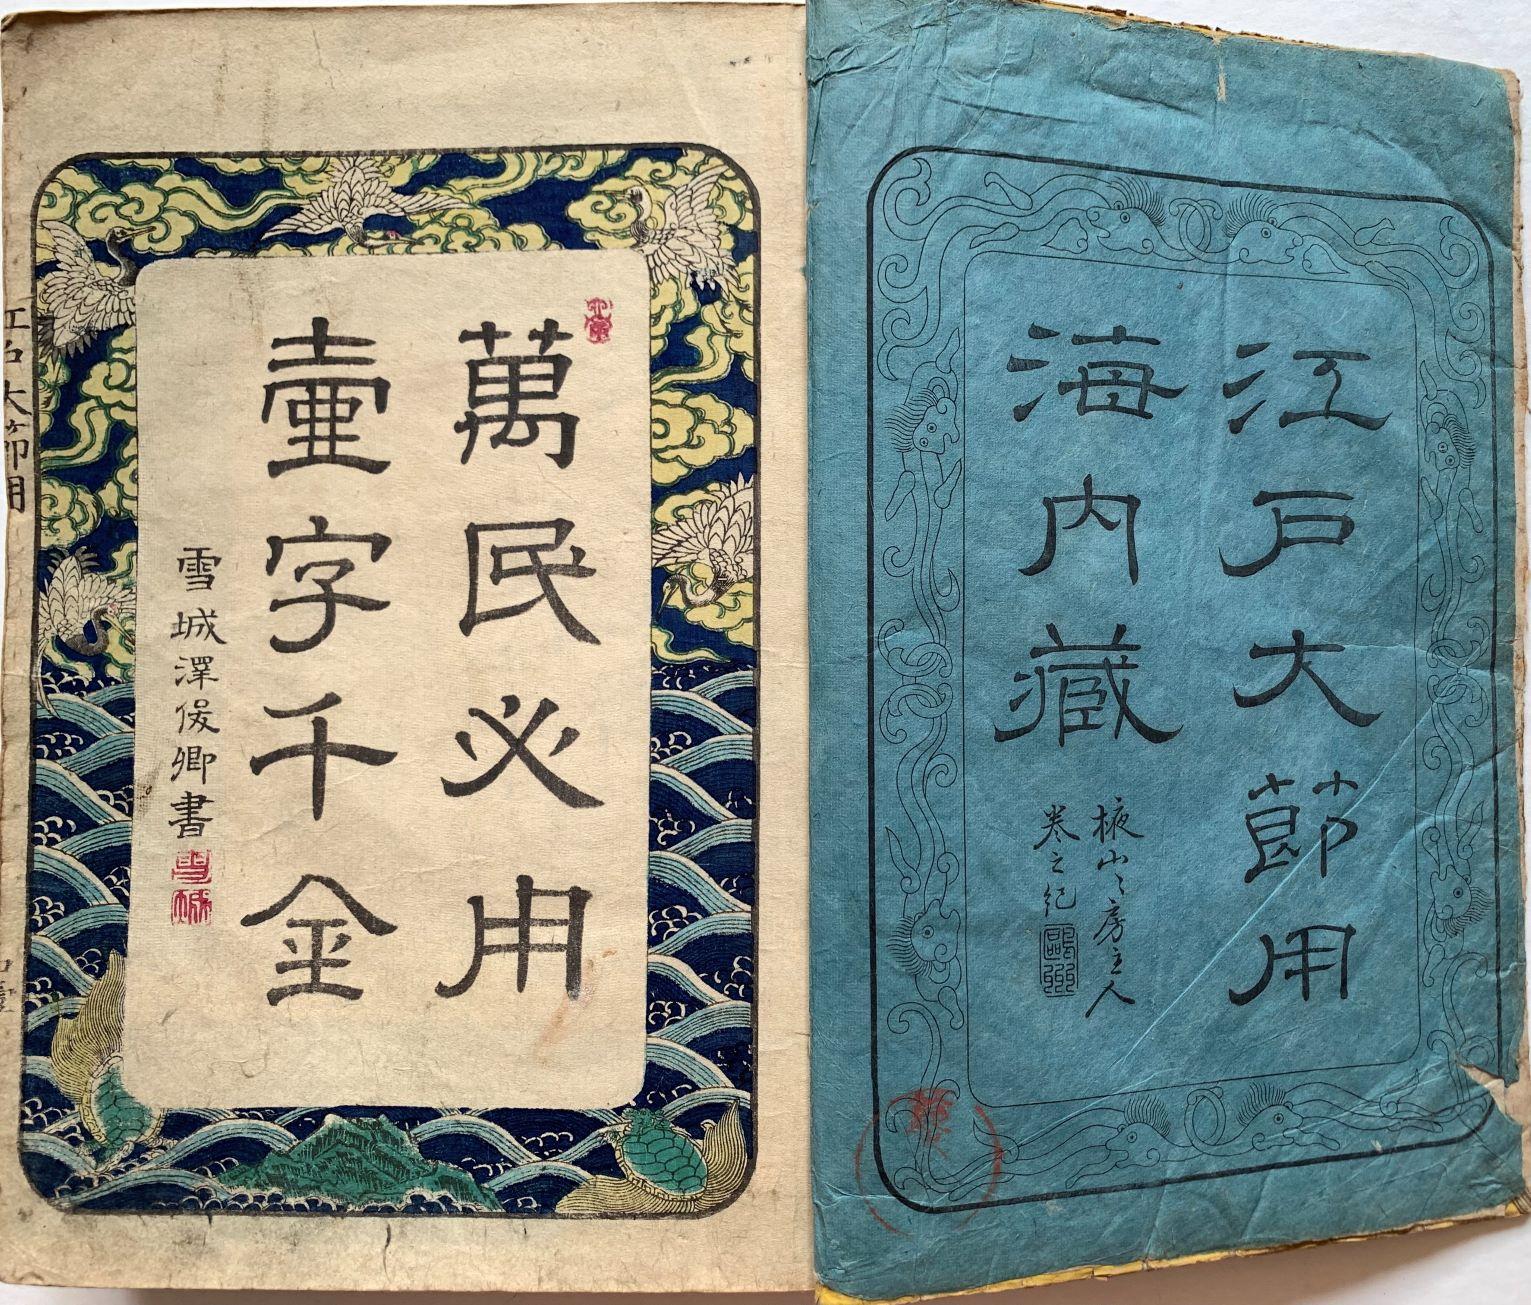 江戸大節用
海内藏
掖山〻房主人
卷之紀
萬民必用
壷字千金
雪城澤俊卿書
雪城
江戸大節用